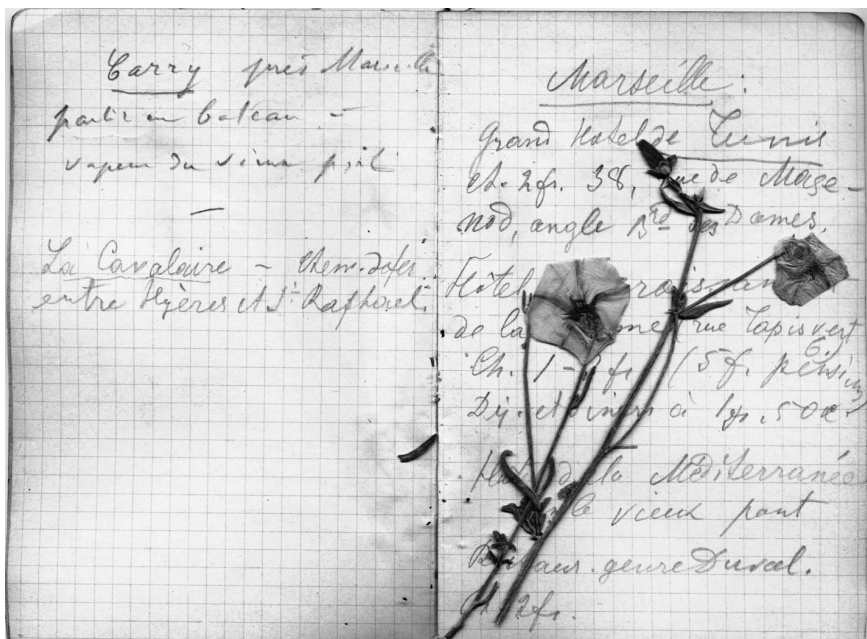 Carry près Marseille
partir en bateau –
vapeur du vieux port
La Cavalaire – chem. de fer
entre Hyères et St Raphael.
Marseille :
Grand Hotel de Tunis
ch. 2 fr. 38, rue de Maze-
nod, angle Brd des Dames.
Hôtel
de la rue Tapis vert
6)
Ch. 1 - fr. (5 f. pension)
Déj. et diners à 1 fr. 50
de la Méditerranée
le vieux port
genre Duval.
2 fr.